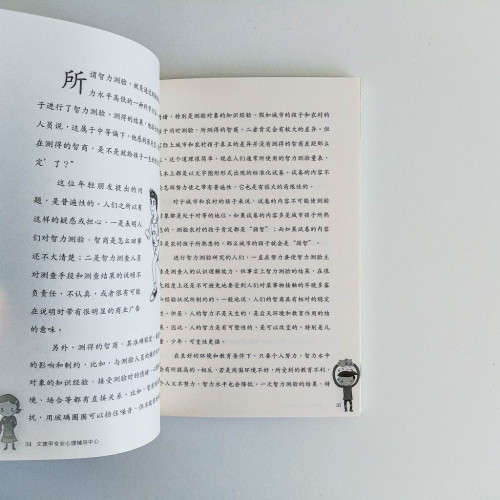 所谓智力测验，就是
力水平高低的一种科学
子进行了智力测验，测得的结果，
人员说，这属于中等偏下，他感到
在测得的智商，是不是就给孩子一
定'了？”
这位年轻朋友提出的问
题，是普遍性的。人们之所以有
这样的疑惑或担心，一是表明人
们对智力测验、智商是怎么回事
还不大清楚；二是智力测查人员
对测查手段和测查结果的说明不
负责任，不认真，或者很有可能
在说明时带有很明显的商业广告
的意味。
另外，测得的智商，其准确程度，
的影响和制约，比如，与测验人员的
对象的知识经验，接受测验时的情绪，
境、场合等都有直接关系。比如，在
扰，用玻璃围围可以挡住噪音，但
34 文德甲专业心理辅导中心
绪，特别是测验对象的知识经验。假如城市的和农村的
子同时测验，所测得的智商，二者肯定会有较大的差异。但
际上城市和农村孩子真正的差异并没有测得的智商差距那么
。这个道理很简单，现在人们通常所使用的智力测验量表，
本上都是以文字图形形式出现的标准化试卷。试卷的内容不
怎样努力使之带有普遍性，它也是有很大的局限性的。
对于城市或农村的孩子，试卷的内容不可能使测验
对象都是处于对等的地位。如果试卷的内容多是城市孩子所熟
的，测验农村的孩子肯定都是“弱智”；而如果试卷的内容
是农村孩子所熟悉的，那么城市的孩子就会是“弱智”。
进行智力测验研究的人们，一直在努力要使智力测验主
是测查人的认识理解能力，但事实上智力测验的结果，在很
上还是不可避免地要受到人们对某事物接触的不晓多寡
和经验状况所制约的。一般地说，人们的智商具有相对的稳定
，但是，人的智力不是天生的，是后天环境和教育作用的结
果。因此，人的智力是有可塑性的，是可以改变的。特别是儿
少年，可变性更强。
在良好的环境和教养条件下，只要个人努力，智力水平
会有所提高的。相反，若是周围环境不好，所受到的教育不利，
个人又不努力，智力水平也会降低。一次智力测验的结果，特
35